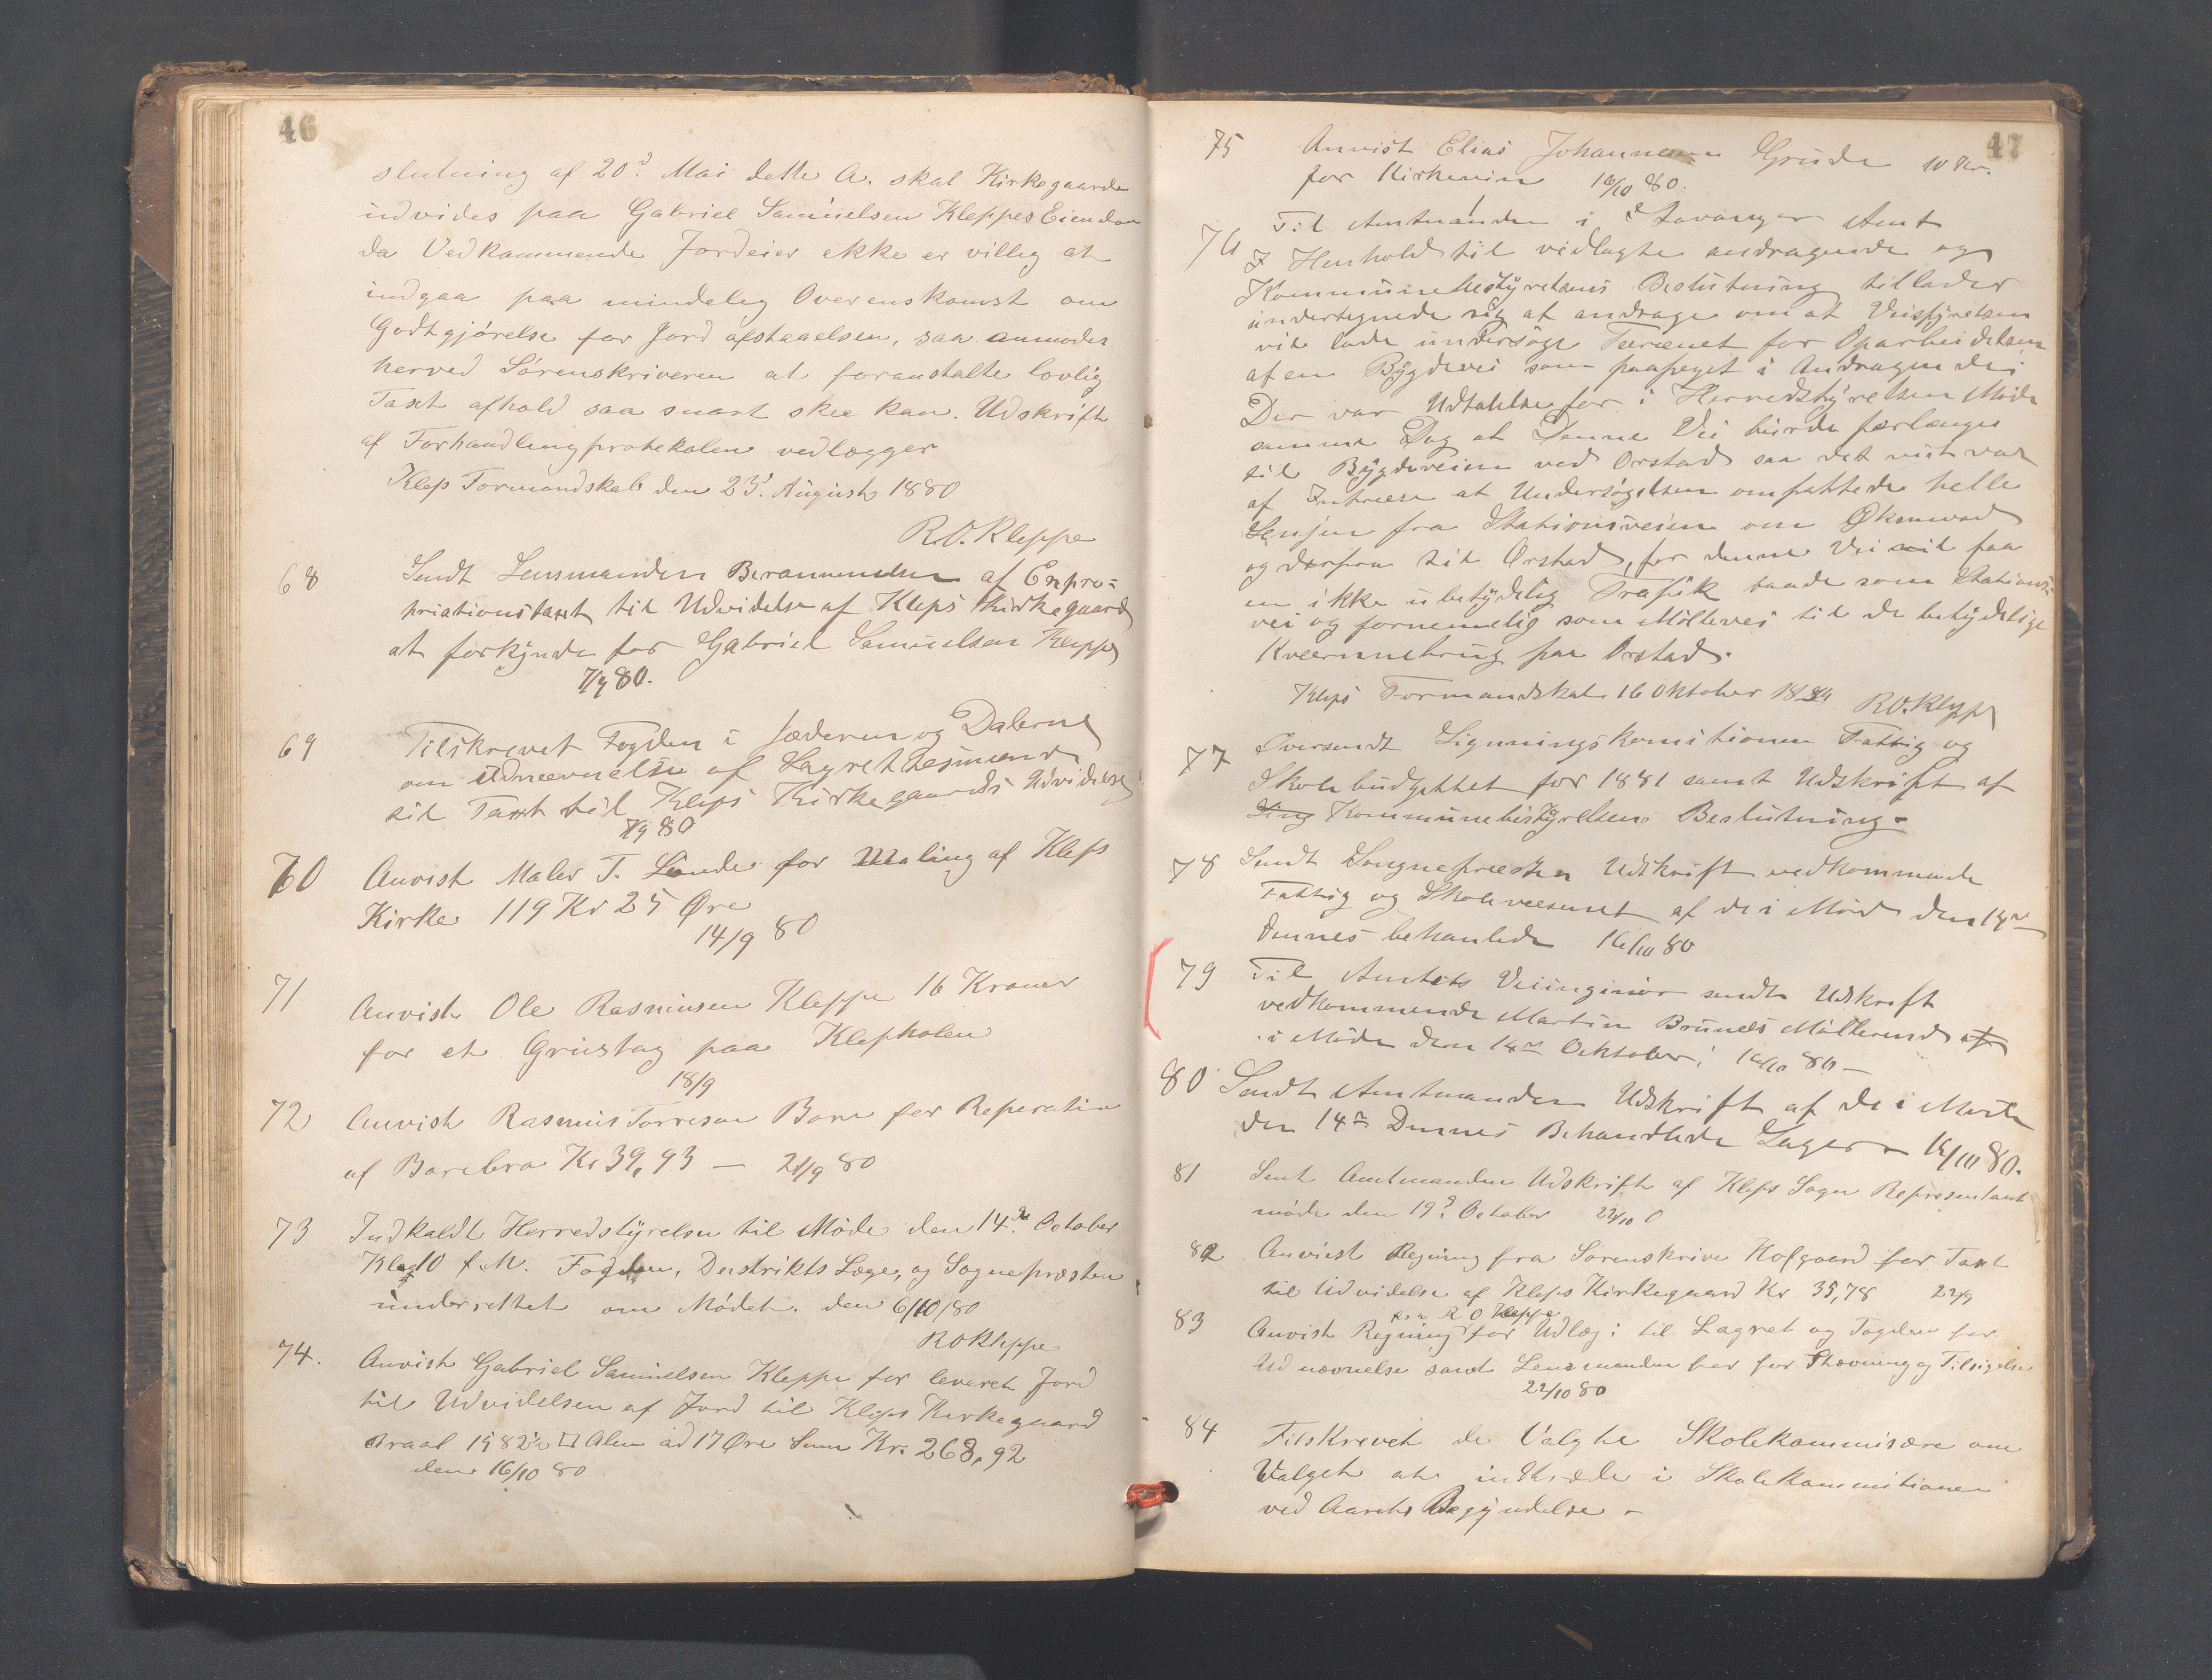 46
slutning af 20d. Mai dette A. skal Kirkegaarde
udvides paa Gabriel Samuelsen Kleppes Eiendom
da Vedkommende Jordeier ikke er villig at
indgaa paa mindelig Overenskomst om
Godtgjørelse for Jord afstaaelsen, saa anmodes
herved Sorenskriveren at foranstalte lovlig
Taxt afhold saa snart skee kan. Udskrift
af Forhandlingprotokolen vedlægger
Klep Formandskab den 23d. August 1880
R.O. Kleppe
68 Sendt Lensmanden Berammelsen af Expro-
priationstaxt til Udvidelse af Kleps Kirkegaard
at forkynde for Gabriel Samuelsen Kleppe
7/9 80.
69 Tilskrevet Fogden i Jæderen og Dalerne
om Udnævnelse af Lagrettesmænd
til Taxt til Kleps Kirkegaards Udvidelse
7/9 80
70 Anvist Maler T. Lunde for Maling af Kleps
Kirke 119 Kr 25 Øre
14/9 80
71 Anvist Ole Rasmusen Kleppe 16 Kroner
for et Grustag paa Klepholen
18/9
72 Anvist Rasmus Torresen Bore for Reperation
af Borebro Kr 39,93 — 21/9 80
73 Indkaldt Herredstyrelsen til Møde den 14de October
Klog 10 f.M. Fogden, Destrikts Læge, og Sognepræsten
underrettet om Mødet. den 6/10/80
R O Kleppe
74. Anvist Gabriel Samuelsen Kleppe for leveret Jord
til Udvidelsen af Jord til Kleps Kirkegaard
Areal 1582½ □ Alen ad 17 Øre Sum Kr. 268,92
den 16/10 80
47
75 Anvist Elias Johannesen Grude 10 Kr.
for Kirkevin 16/10 80.
76 Til Amtmanden i Stavanger Amt
I Henhold til vedlagte andragende og
Kommunebestyrelsens Beslutning tillader
undertegnede sig at andrage om at Veistyrelsen
vil lade undersøge Terrænet for Oparbeidelsen
af en Bygdevei som paapeget i Andragendei
Der var Udtalelse for i Herredstyrelsen Møde
samme Dag at Denne Vei burde forlænges
til Bygdeveien ved Orstad saa det vist var
af Intresse at Undersøgelsen omfattede helle
Linjen fra Stationsveien om Øksnevad
og derfra til Orstad, for denne Vei vil faa
en ikke ubetydelig Trafik baade som Stations-
vei og fornemmelig som Møllevei til de betydelige
Kværnnebrug paa Orstad.
Kleps Formandskab 16 Oktober 1880 R O. Kleppe
77 Oversendt Ligningskomitionen Fattig og
Skolebudgettet for 1881 samt Udskrift af
Kommunebestyrelsens Beslutning -
78 Sendt Sognepræsten Udskrift vedkommende
Fattig og Skolevæsenet af de i Møde den 14de
dennes behanlede 16/10 80
79 Til Amtets Veiinginiør sendt Udskrift
vedkommende Martin Møllerend af
i Møde den 14de Oktober 16/10 80 —
80 Sendt Amtmanden Udskrift af de i Møde
den 14de Dennes Behandlede Sager - 16/10 80.
81 Sent Amtmanden Udskrift af Kleps Sogn Representant
møde den 19d. October 22/10 0
82 Anviest Regning fra Sorenskrive Hofgaard for Taxt
til Udvidelse af Kleps Kirkegaard Kr 35,78 22/9
fra R O Kleppe
83 Anvist Regning for Udlæg: til Lagret og Fogden for
Udnævnelse samt Lensmanden her for Stævning og Tilsigelse
22/10 80
84 Tilskrevet de Valgte Skolekommisære om
Valget at indtræde i Skolekommitionen
ved Aarets Begyndelse -